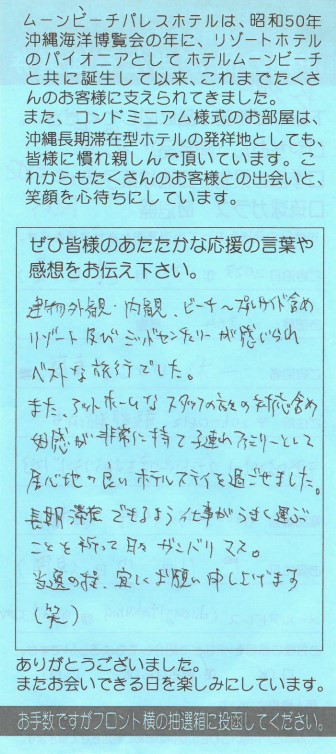 ムーンビーチパレスホテルは、昭和50年
沖縄海洋博覧会の年に、リゾートホテル
のパイオニアとしてホテルムーンビーチ
と共に誕生して以来、これまでたくさ
んのお客様に支えられてきました。
また、コンドミニアム様式のお部屋は、
沖縄長期滞在型ホテルの発祥地としても、
皆様に慣れ親しんで頂いています。こ
れからもたくさんのお客様との出会いと、
笑顔を心待ちにしています。
ぜひ皆様のあたたかな応援の言葉や
感想をお伝え下さい。
建物外観・内観、ビーチ〜プールサイド含め
リゾート及びミッドセンチュリーが感じられ
ベストな旅行でした。
また、アットホームなスタッフの方々の対応含め
好感が非常に持て子連れファミリーとして
居心地の良いホテルステイを過ごせました。
長期滞在できるよう仕事がうまく運ぶ
ことを祈って日々ガンバリマス。
当選の程、宜しくお願い申し上げます
(笑)
ありがとうございました。
またお会いできる日を楽しみにしています。
お手数ですがフロント横の抽選箱に投函してください。